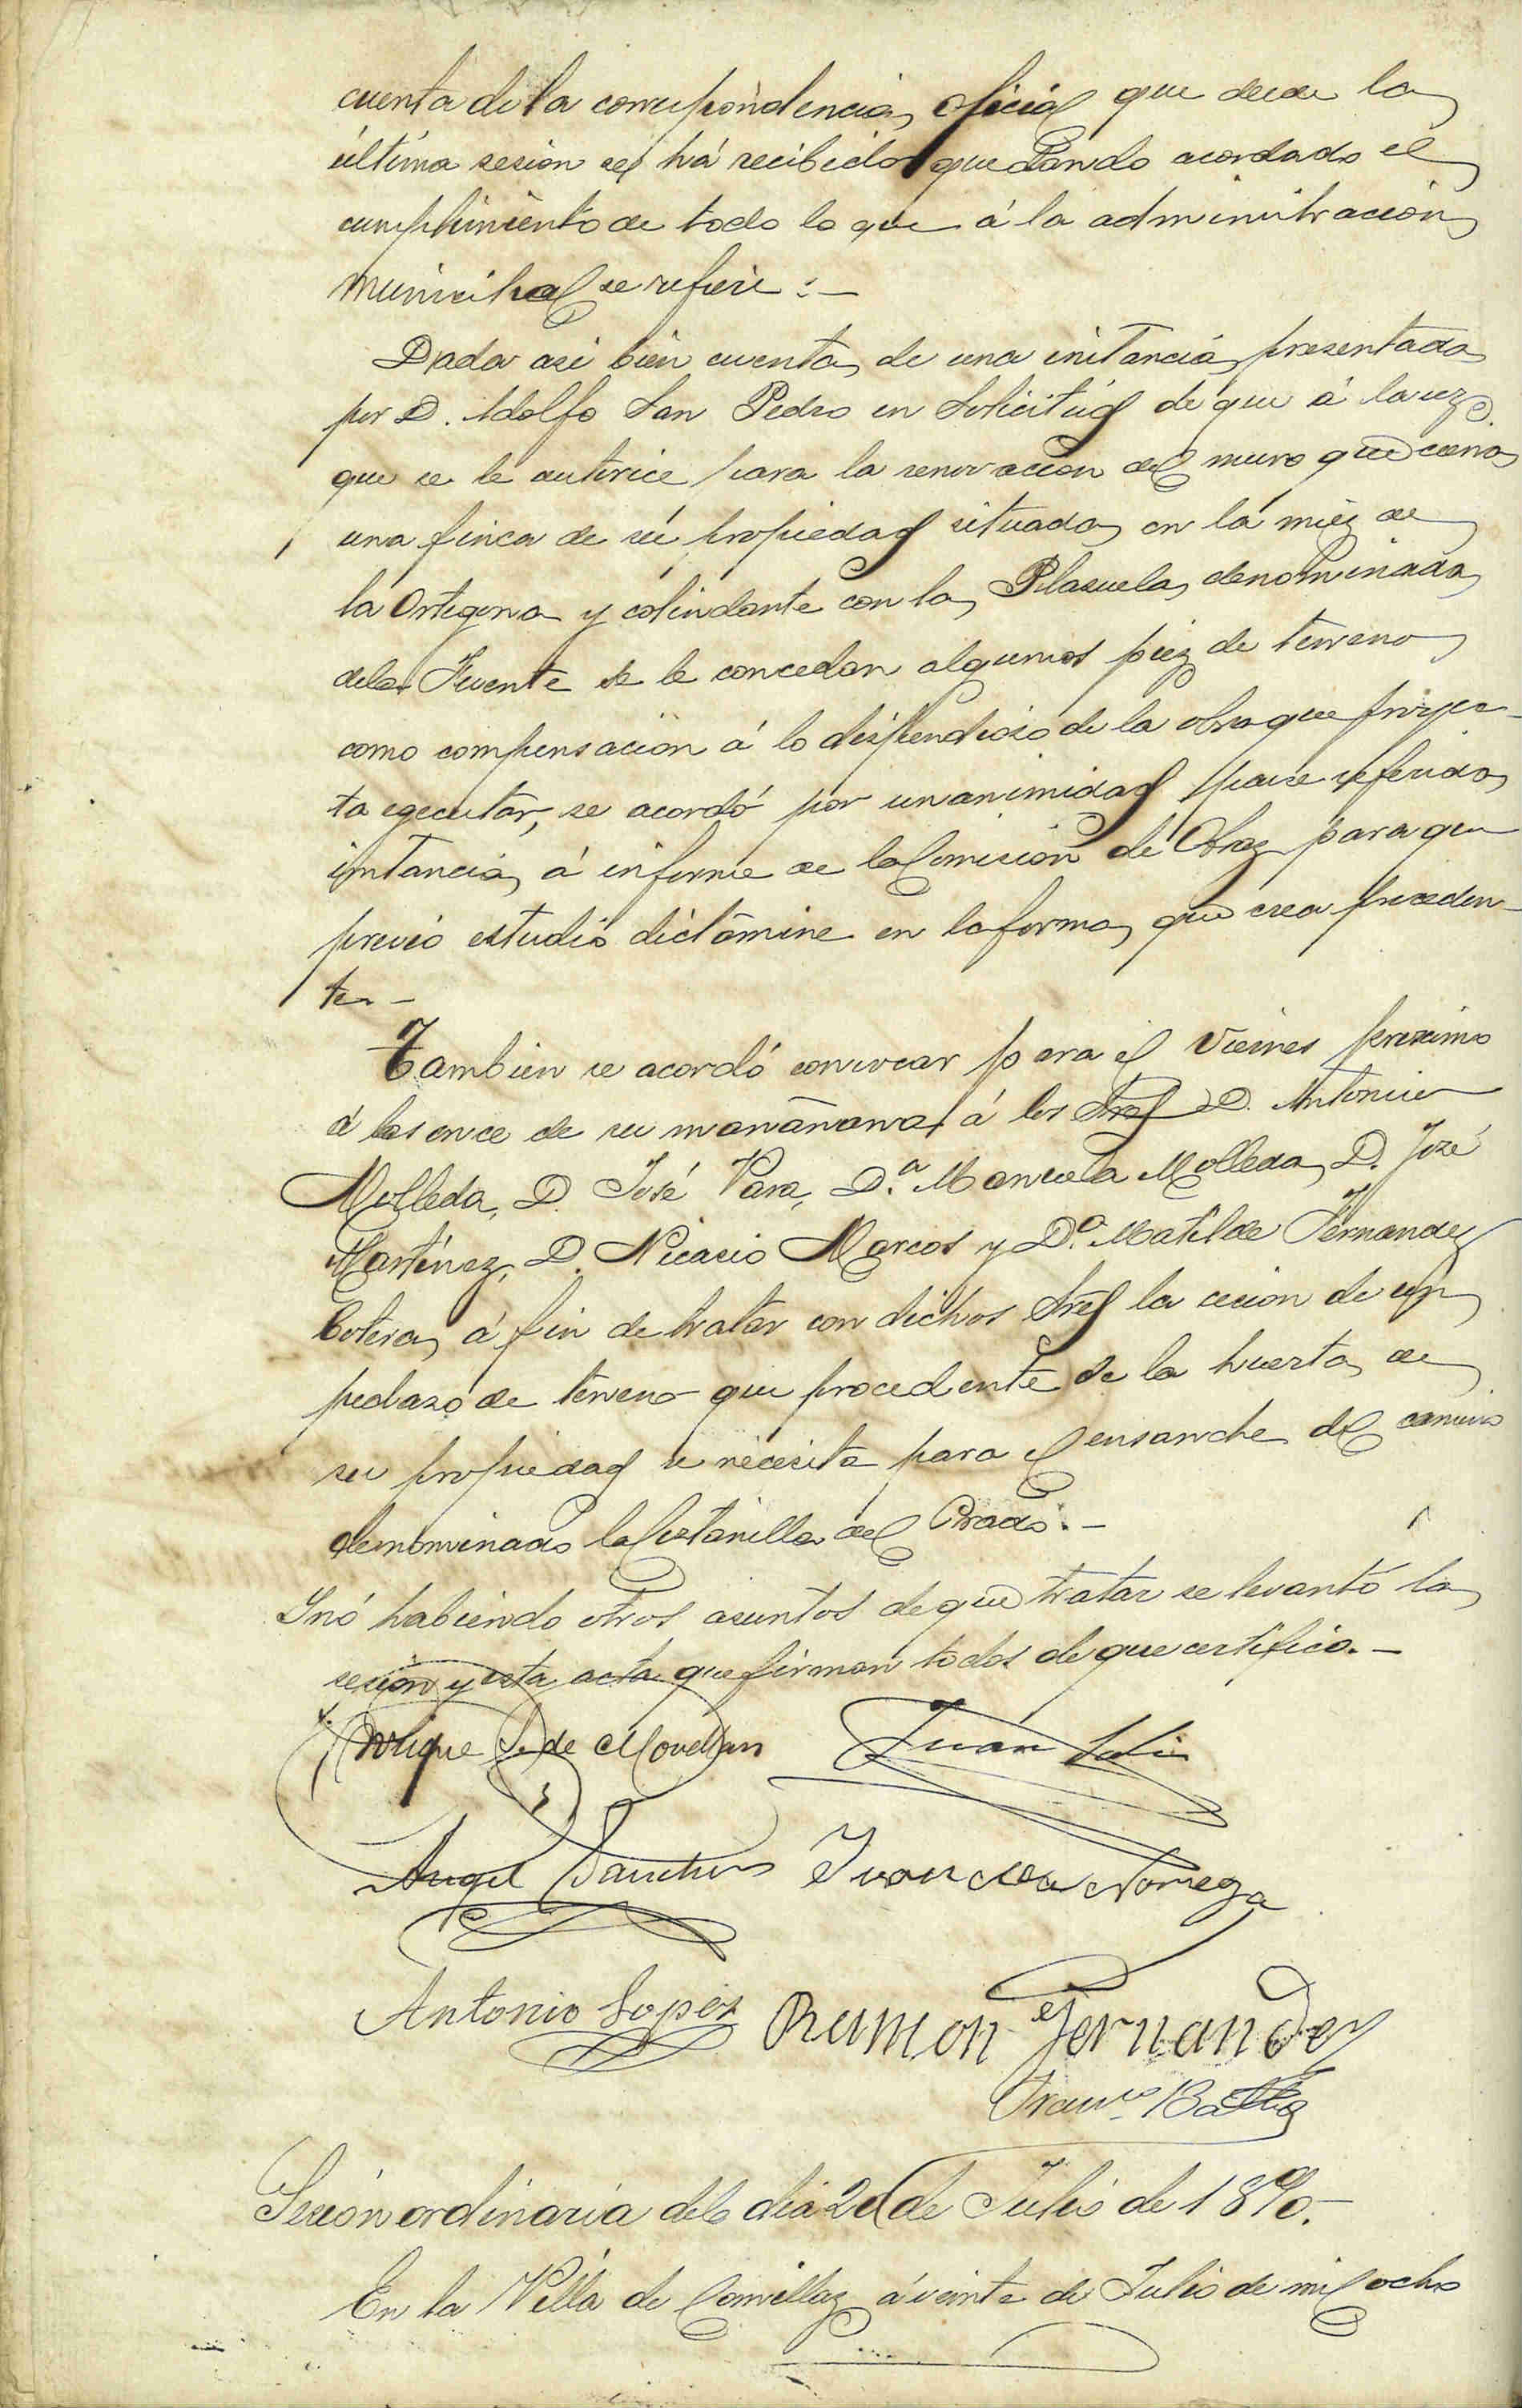 cuenta de la correspondencia oficial que desde la
última sesion se há recibido quedando acordado el
cumplimiento de todo lo que á la administracion
municipal se refiere:—
Dada asi bien cuenta de una instancia presentada
por D. Adolfo San Pedro en solicitúd de que á la vez
que se le autorice para la renovacion del muro que cierra
una finca de su propiedad situada en la miés de
la Ortegona y colindante con la Plasuela denominada
de la Fuente se le concedan algunos piez de terreno
como compensacion á lo dispendioso de la obra que proyec-
ta egecutar, se acordó por unanimidad pase referida
instancia á informe de la Comision de Obras para que
previo estudio dictamine en la forma que crea proceden-
te.—
Tambien se acordó convocar para el Viernes proximo
á las once de su mañana á los Sres D. Antonio
Molleda, D. José Vara, D.ª Manuela Molleda, D. José
Martínez, D. Nicasio Marcos y D.ª Matilde Fernandez
Cotera, á fin de tratar con dichos Sres la cesion de un
pedazo de terreno que procedente de la huerta de
su propiedad se necesita para el ensanche del camino
denominado la Costanilla del Prado.—
Y nó habiendo otros asuntos de que tratar se levantó la
sesion y esta acta que firman todos de que certifico.—
Enrique S. de Movellan Juan
Angel Sanchez Francisco Noriega
Antonio Lopez Ramon Fernandez
Franco
Sesión ordinaria del dia 20 de Julio de 1890.—
En la Villa de Comillas á veinte de Julio de mil ocho